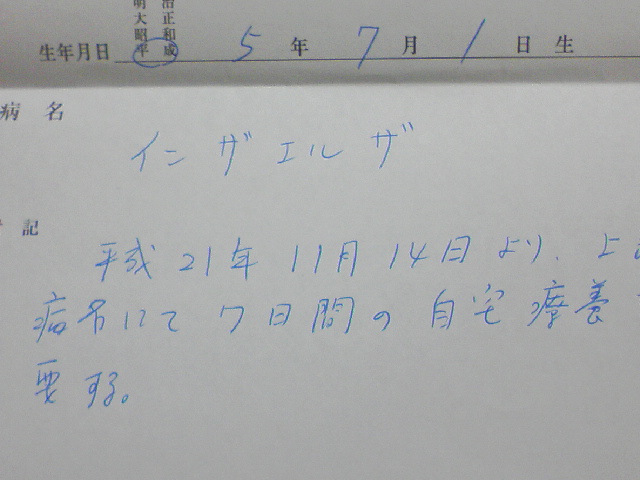 明大昭平
治正和成
生年月日 5 年 7 月 1 日生
病名
インザエルザ
記
平成 21年 11月 14日 より、上
病名にて 7日間の自宅療養
要する。